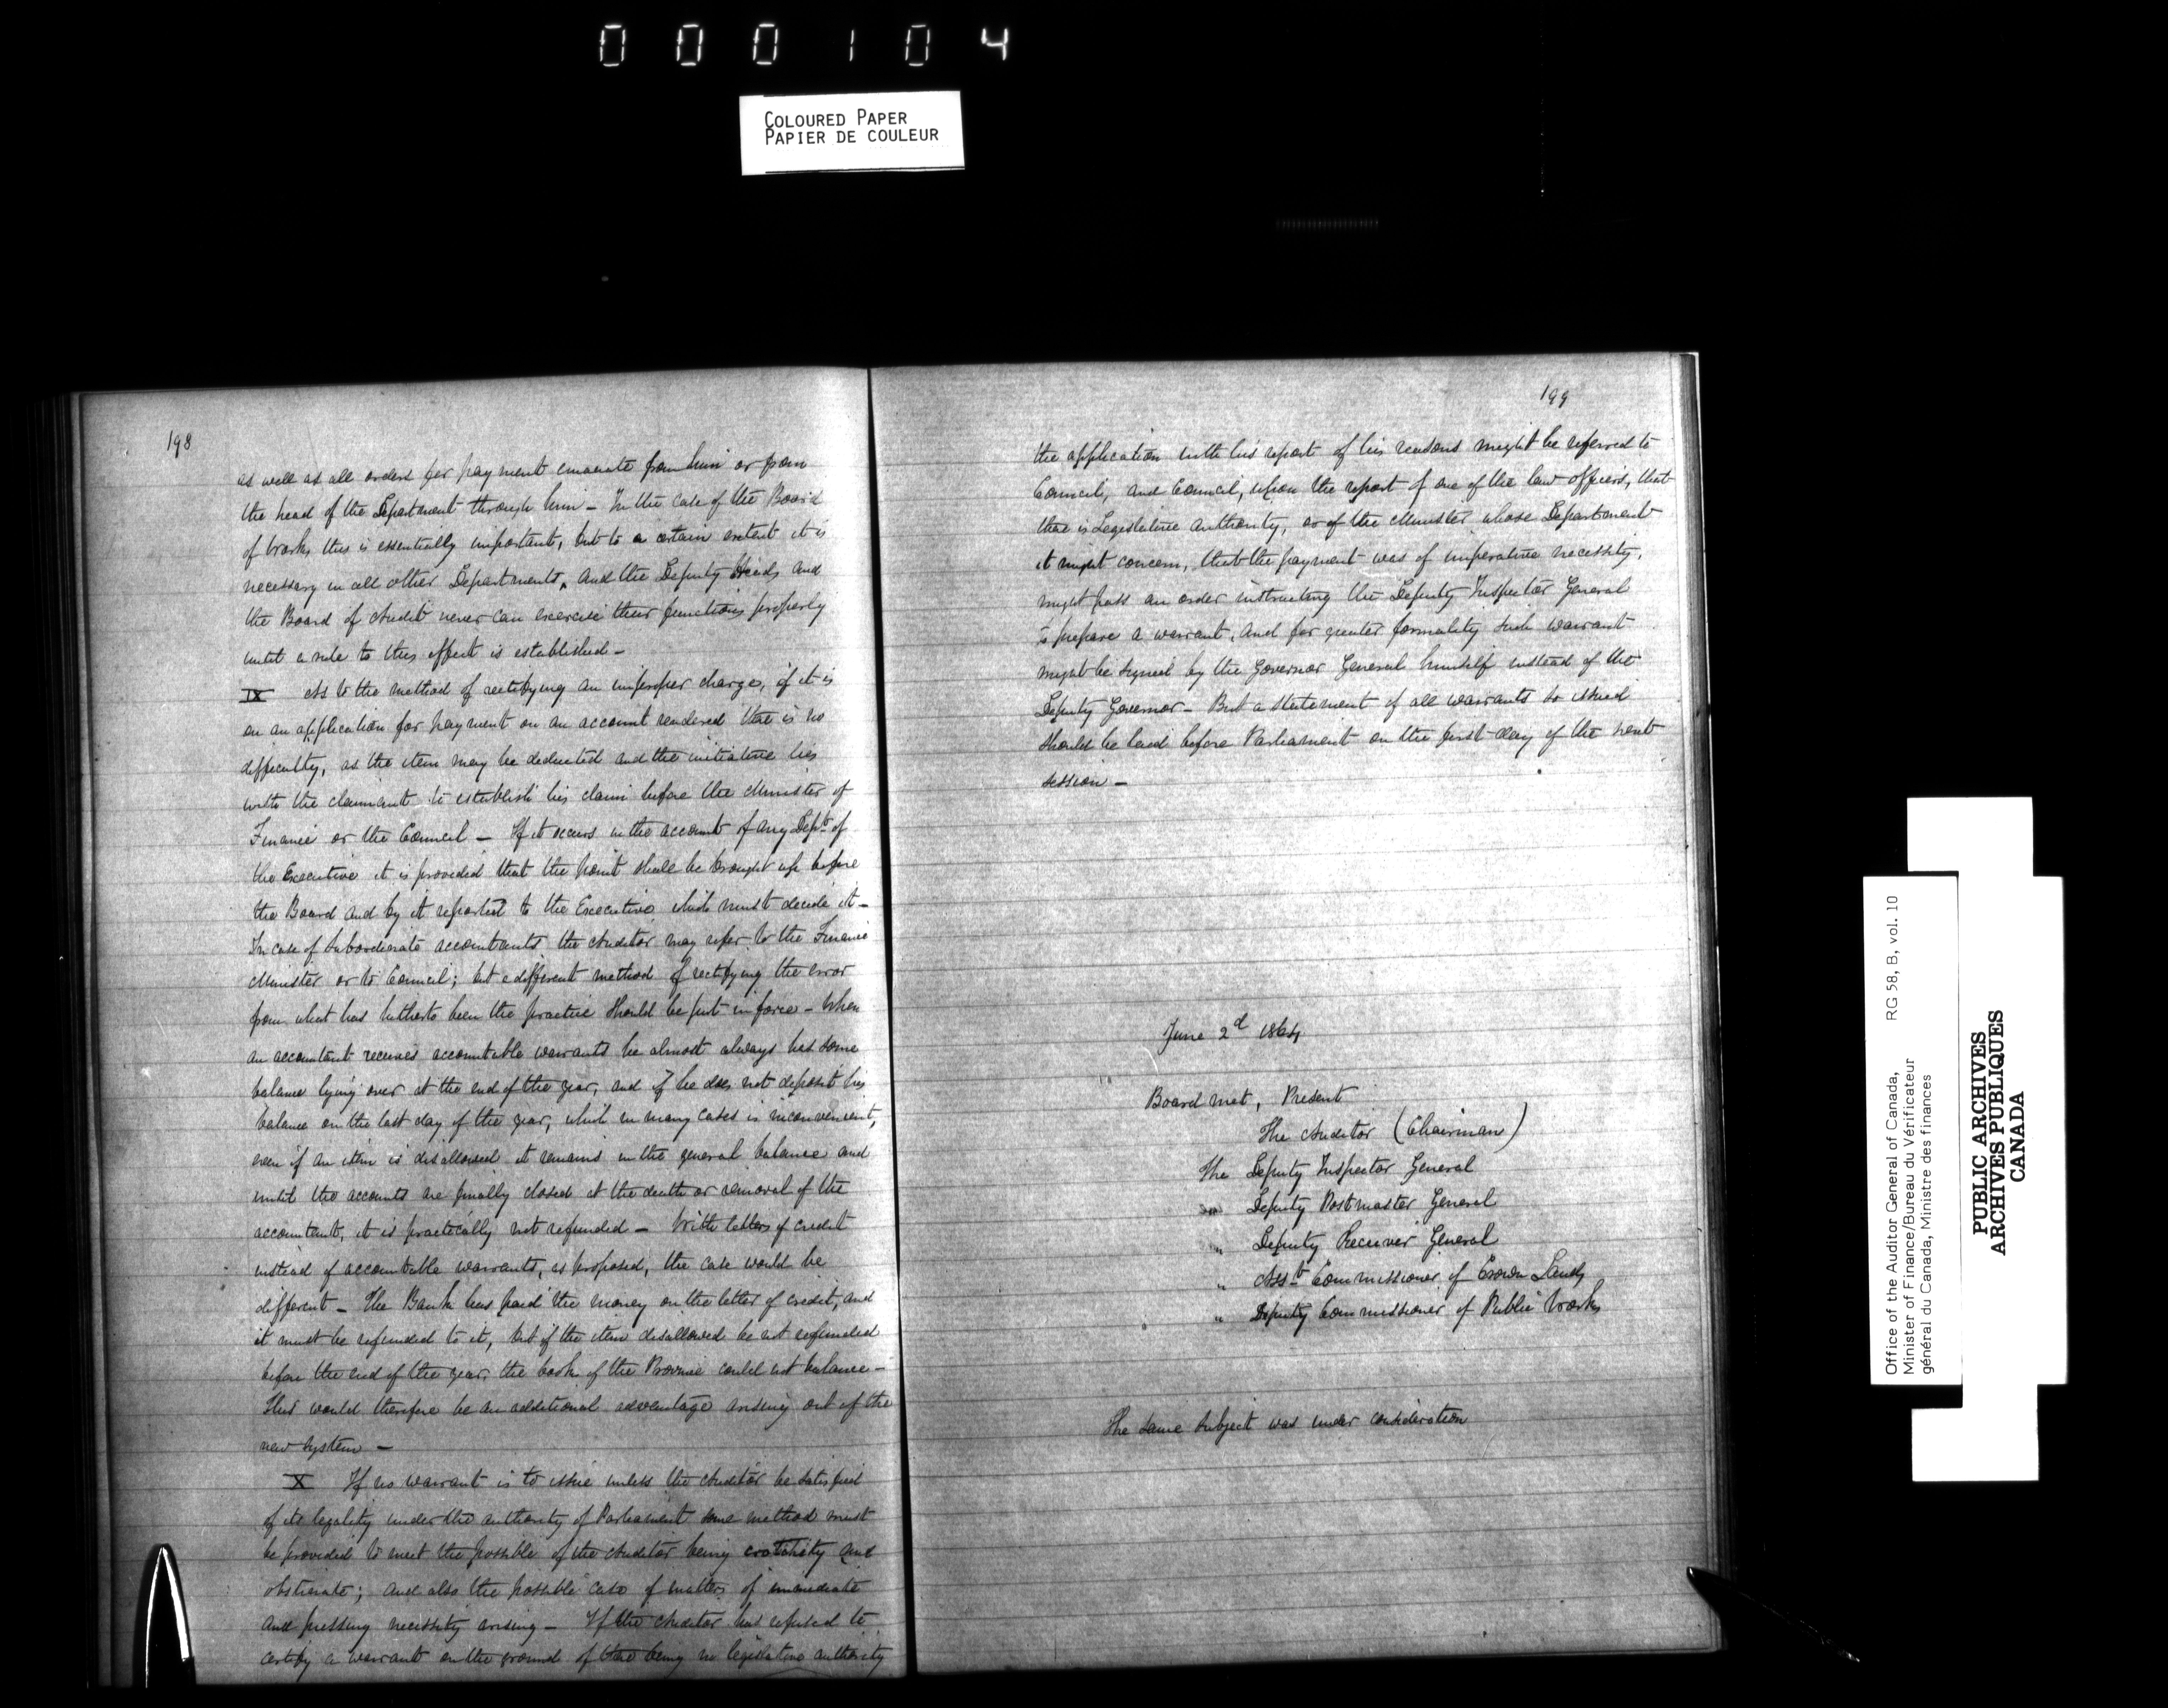 000104
COLOURED PAPER
PAPIER DE COULEUR
198
as well as all orders for payment emanate from him or from
the head of the Department through him – In the case of the Board
of Works this is essentially important, but to a certain extent it is
necessary in all other Departments, and the Deputy Heads and
the Board of Audit never can exercise their functions properly
until a rule to this effect is established –
IX As to the method of rectifying an improper charge, if it is
on an application for payment on an account rendered there is no
difficulty, as the item may be deducted and the initiative lies
with the claimant to establish his claim before the Minister of
Finance or the Council – If it occurs in the account of any Dept of
the Executive it is provided that the point shall be brought up before
the Board and by it reported to the Executive which must decide it –
In case of Subordinate accountants the Auditor may refer to the Finance
Minister or to Council; but a different method of rectifying the error
from what has hitherto been the practice should be put in force – When
an accountant receives accountable warrants he almost always has some
balance lying over at the end of the year, and if he does not deposit his
balance on the last day of the year, which in many cases is inconvenient,
even if an item is disallowed it remains in the general balance and
until the accounts are finally closed at the death or removal of the
accountant, it is practically not refunded – With letters of credit
instead of accountable warrants, as proposed, the case would be
different – The Bank has paid the money on the letter of credit, and
it must be refunded to it, but if the item disallowed be not refunded
before the end of the year, the books of the Province could not balance –
This would therefore be an additional advantage arising out of the
new system –
X If no warrant is to issue unless the Auditor be satisfied
of its legality under the authority of Parliament some method must
be provided to meet the possible of the Auditor being crotchety and
obstinate; and also the possible case of matters of immediate
and pressing necessity arising – If the Auditor has refused to
certify a warrant on the ground of there being no legislative authority
199
the application with his report of his reasons might be referred to
Council, and Council, upon the report of one of the law officers, that
there is Legislative authority, or of the Minister whose Department
it might concern, that the payment was of imperative necessity,
might pass an order instructing the Deputy Inspector General
to prepare a warrant, and for greater formality such warrant
might be signed by the Governor General himself instead of the
Deputy Governor – But a statement of all warrants so issued
should be laid before Parliament on the first day of the next
session –
June 2d 1864
Board met, Present
The Auditor (Chairman)
The Deputy Inspector General
" Deputy Postmaster General
" Deputy Receiver General
" Asst Commissioner of Crown Lands
" Deputy Commissioner of Public Works
The same subject was under consideration
Office of the Auditor General of Canada, RG 58, B, vol. 10
Minister of Finance/Bureau du Vérificateur
général du Canada, Ministre des finances
PUBLIC ARCHIVES
ARCHIVES PUBLIQUES
CANADA